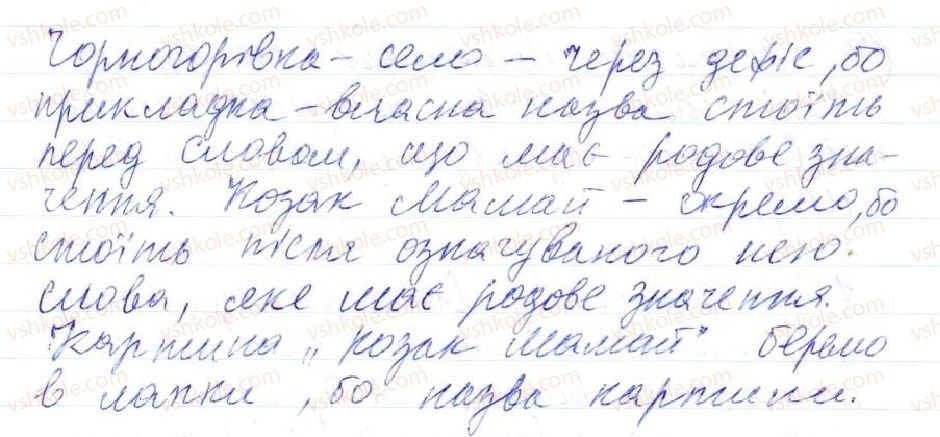 Чорногорівка - село - через дефіс, бо
прикладка - власна назва стоїть
перед словом, що має родове зна-
чення. Козак Мамай - окремо, бо
стоїть після означуваного нею
слова, яке має родове значення.
Картина „Козак Мамай" беремо
в лапки, бо назва картини.